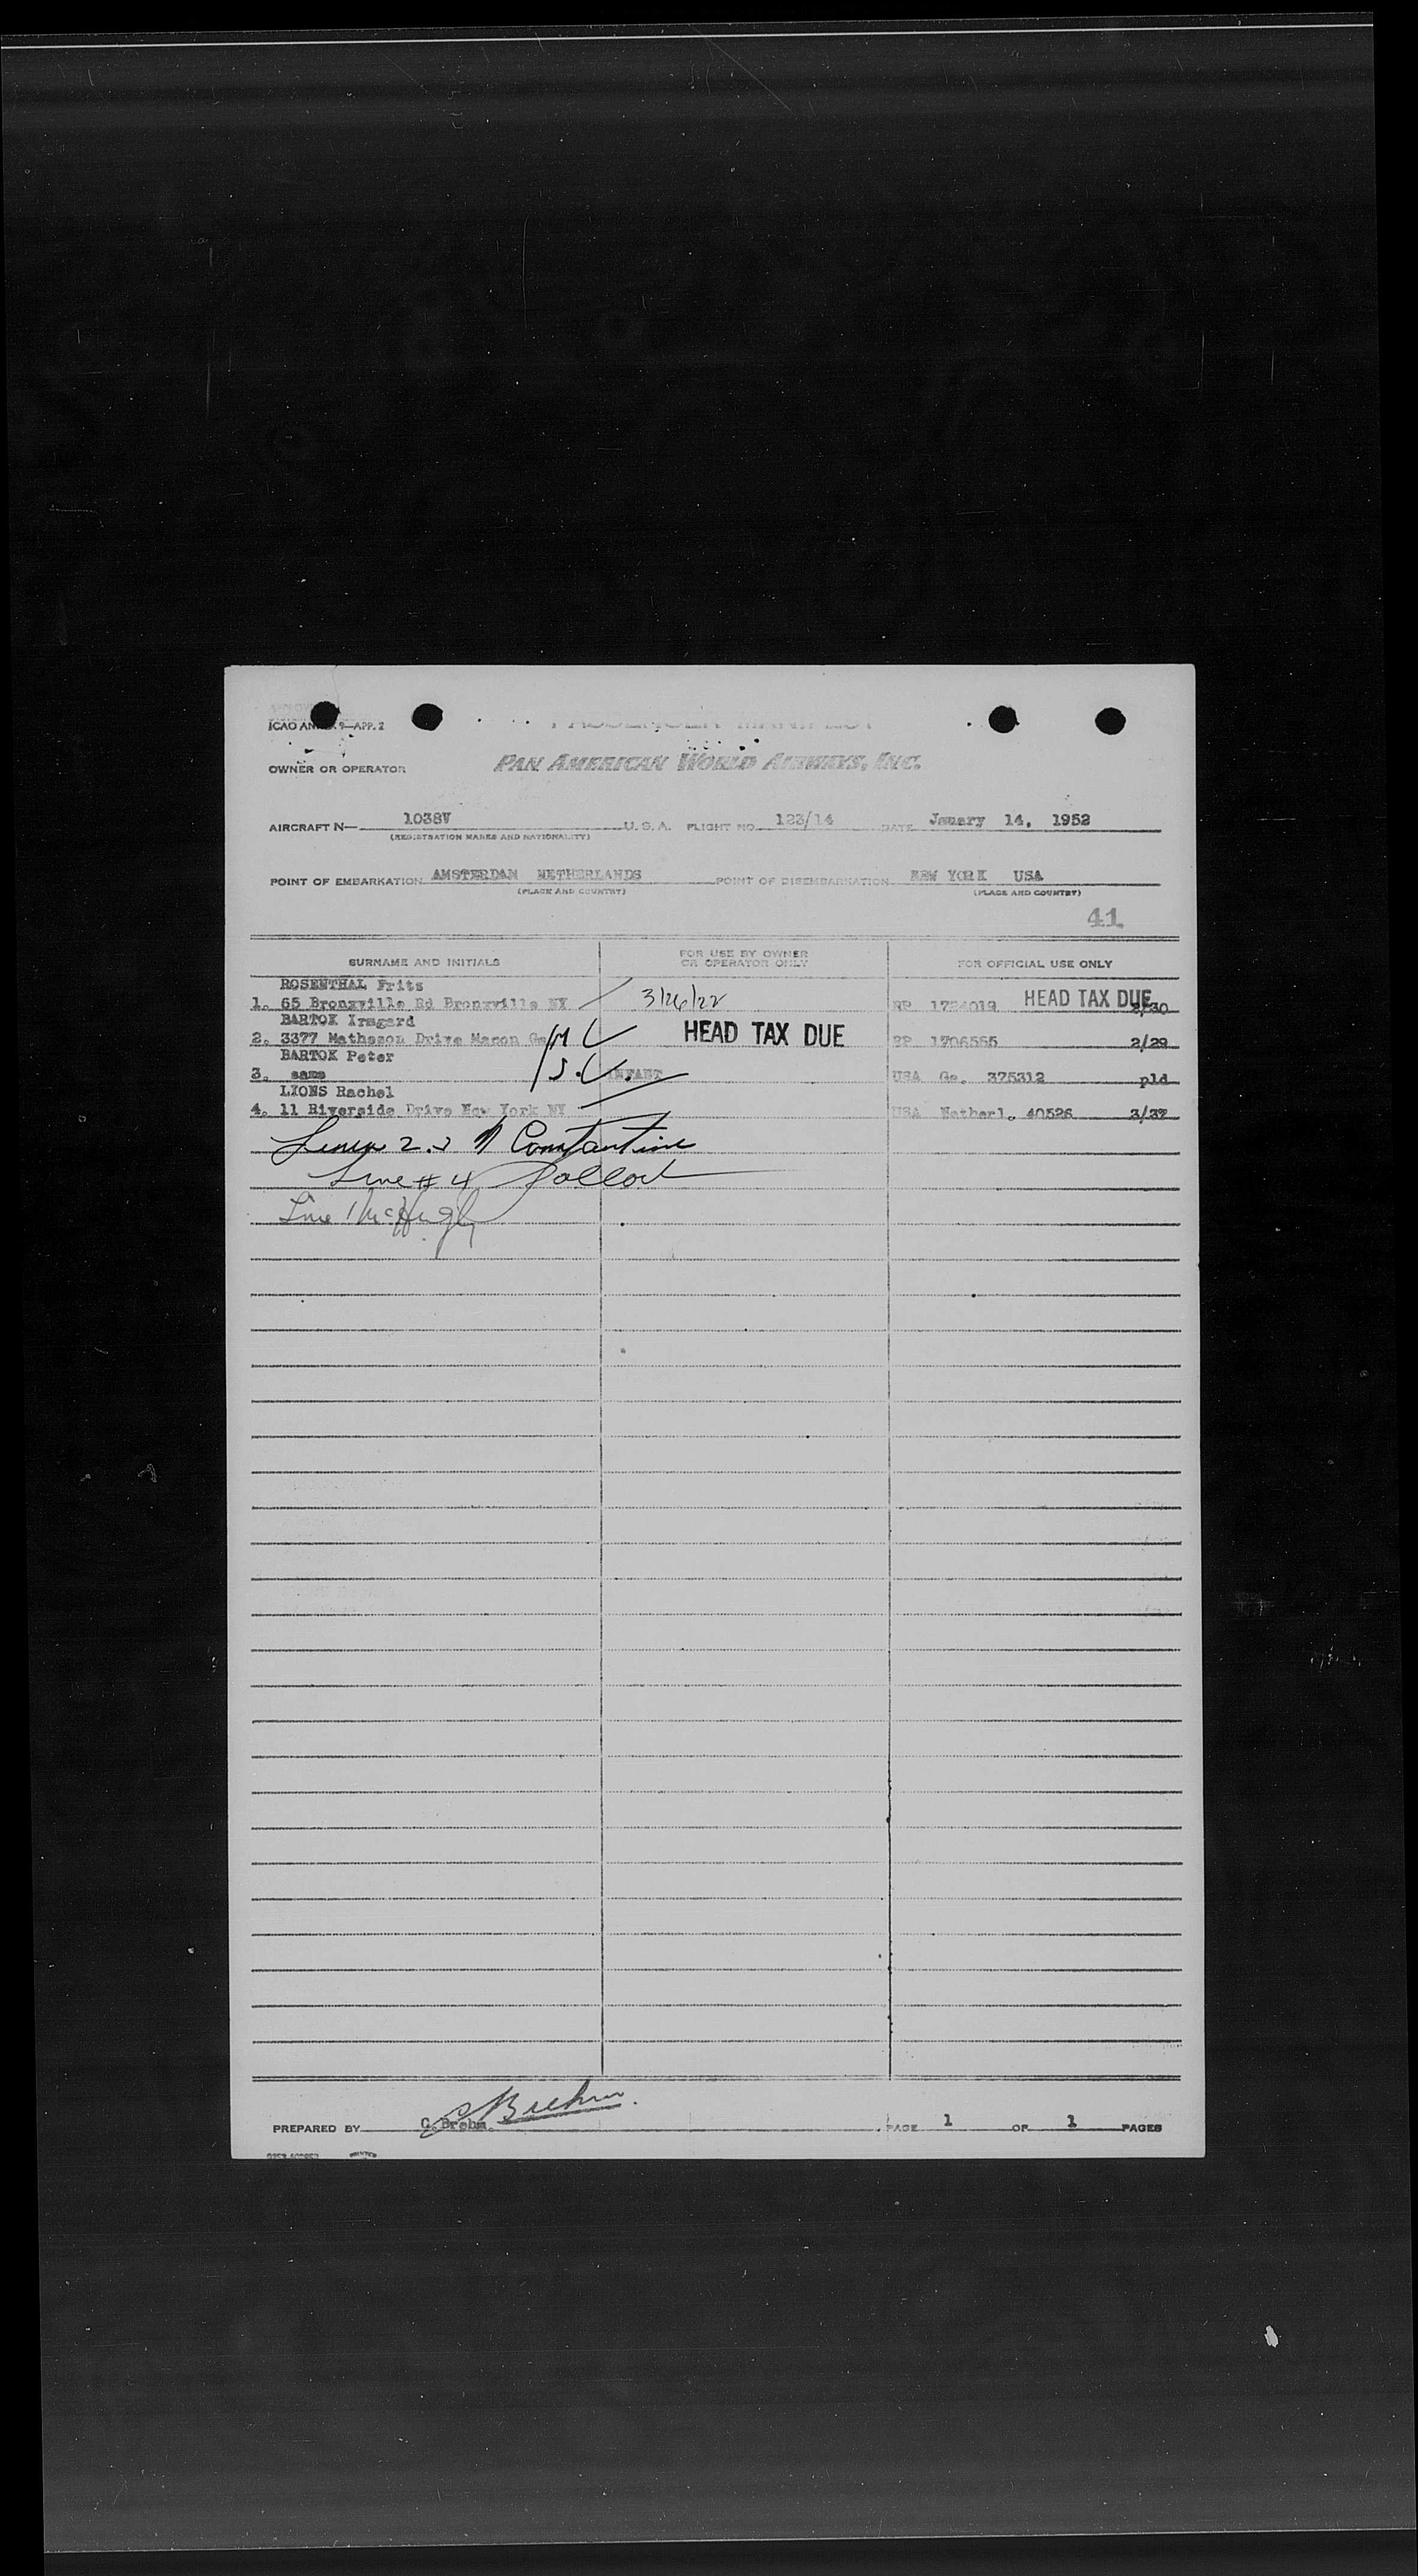 ICAO AN 9—APP. 2
PASSENGER MANIFEST
OWNER OR OPERATOR PAN AMERICAN WORLD AIRWAYS, INC.
AIRCRAFT N— 1038V U. S. A. FLIGHT NO. 123/14 DATE January 14, 1952
(REGISTRATION MARKS AND NATIONALITY)
POINT OF EMBARKATION AMSTERDAM NETHERLANDS POINT OF DISEMBARKATION NEW YORK USA
(PLACE AND COUNTRY) (PLACE AND COUNTRY)
41
SURNAME AND INITIALS FOR USE BY OWNER OR OPERATOR ONLY FOR OFFICIAL USE ONLY
ROSENTHAL Frits
1. 65 Bronxville Rd Bronxville NY 3/26/22 RP HEAD TAX DUE 2/30
BARTOK Irmgard
2. 3377 Matheson Drive Macon Ga M HEAD TAX DUE RP 1706555 2/29
BARTOK Peter
3. same S. INFANT USA Ge. 375312 pld
LIONS Rachel
4. 11 Riverside Drive New York NY USA Netherl. 40526 3/37
Lines 2.3 Constantine
Line # 4 Pollock
Line 1 McHugh
PREPARED BY C. Brehm. PAGE 1 OF 1 PAGES